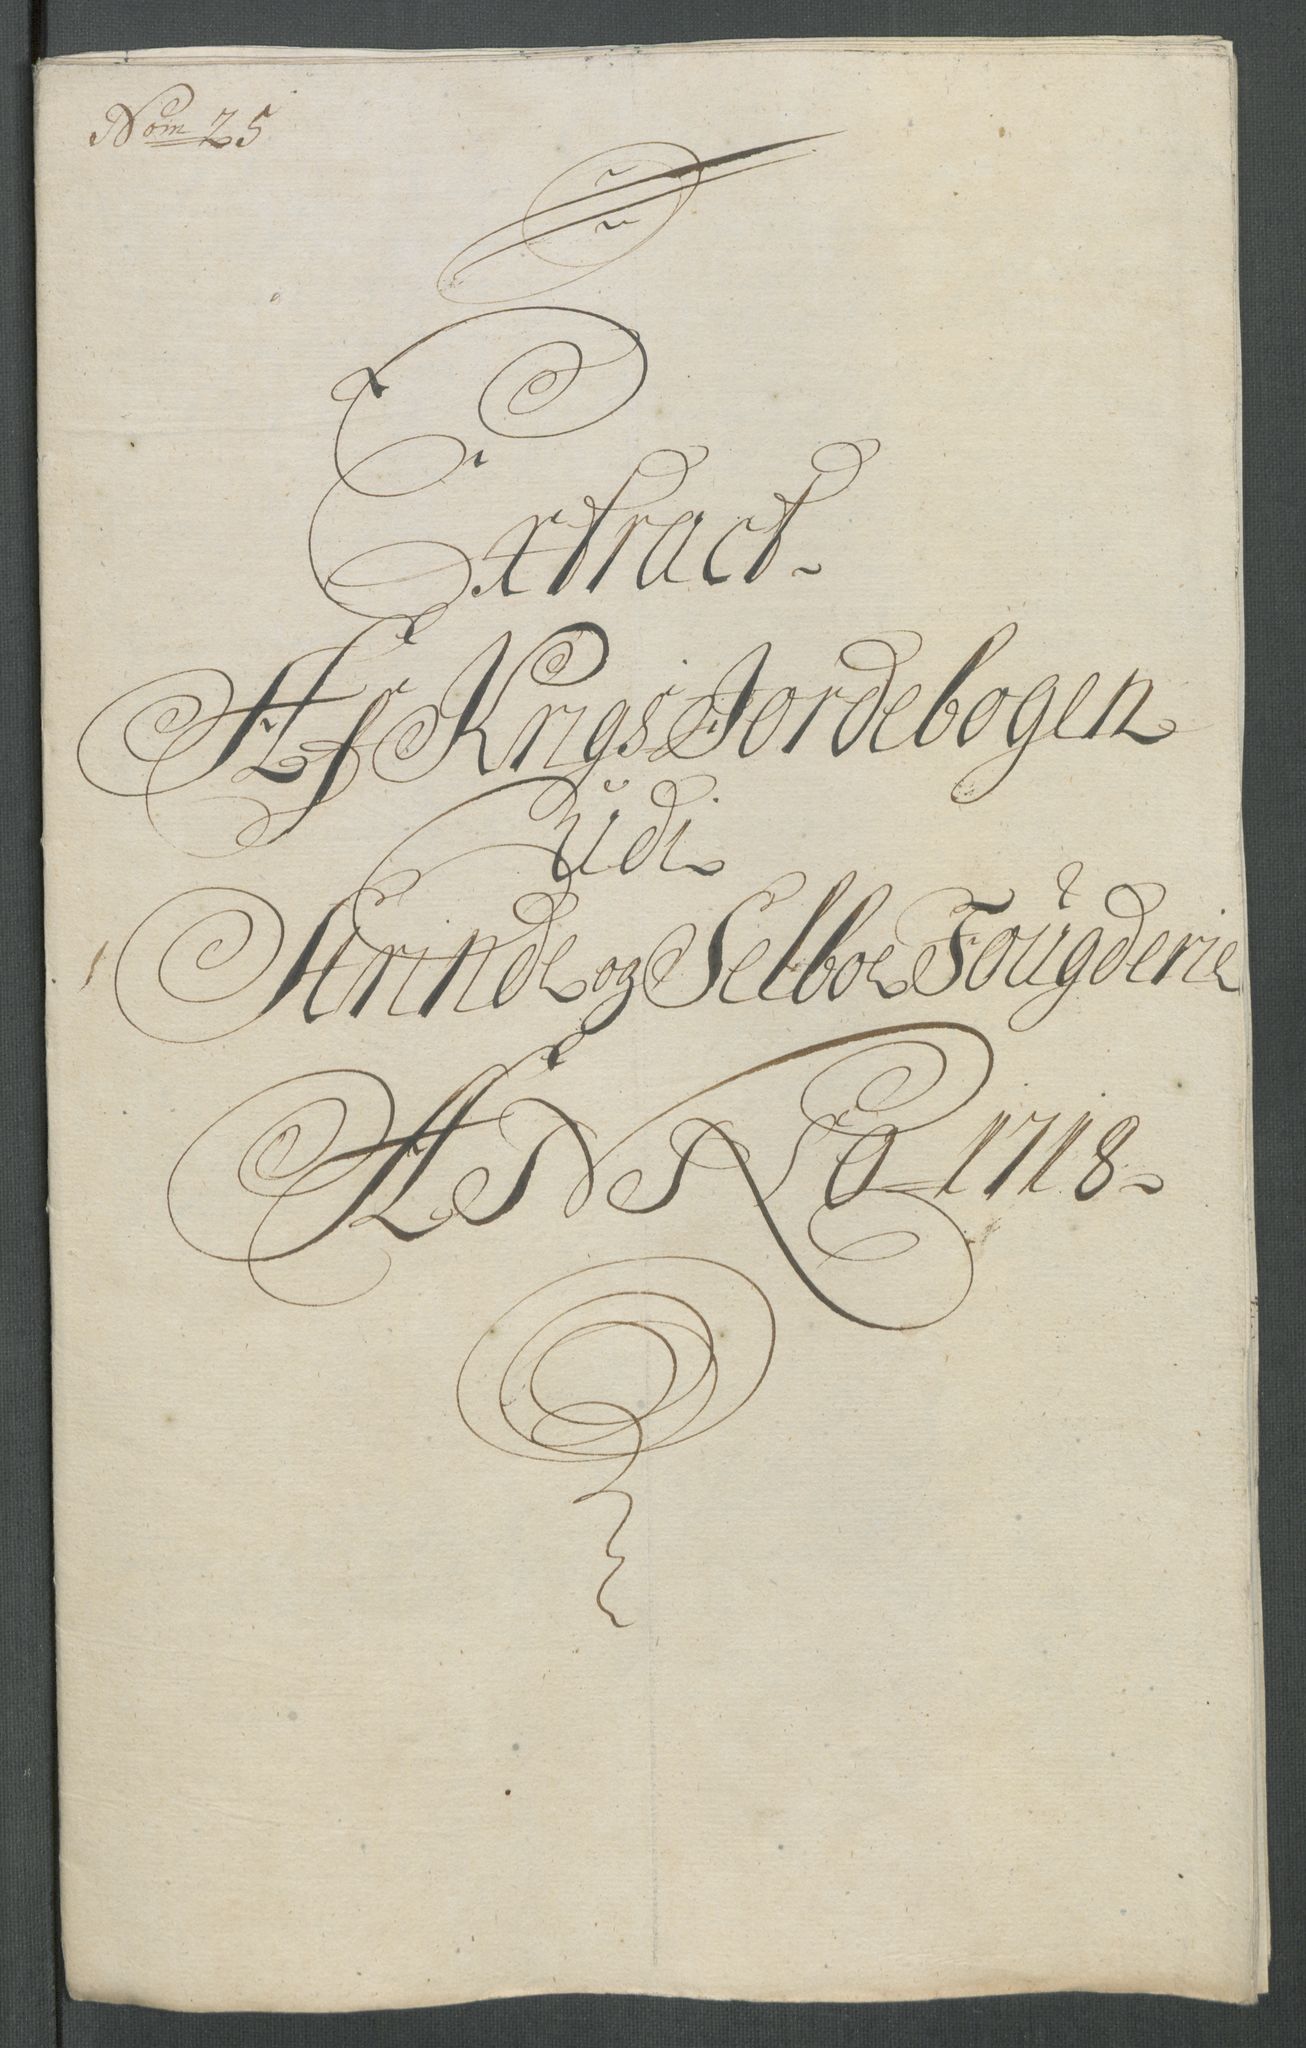 Nom 25
Extract
Af Krigs Jordebogen
Udi
Strinde og Selboe Foügderie
ANNO 1718